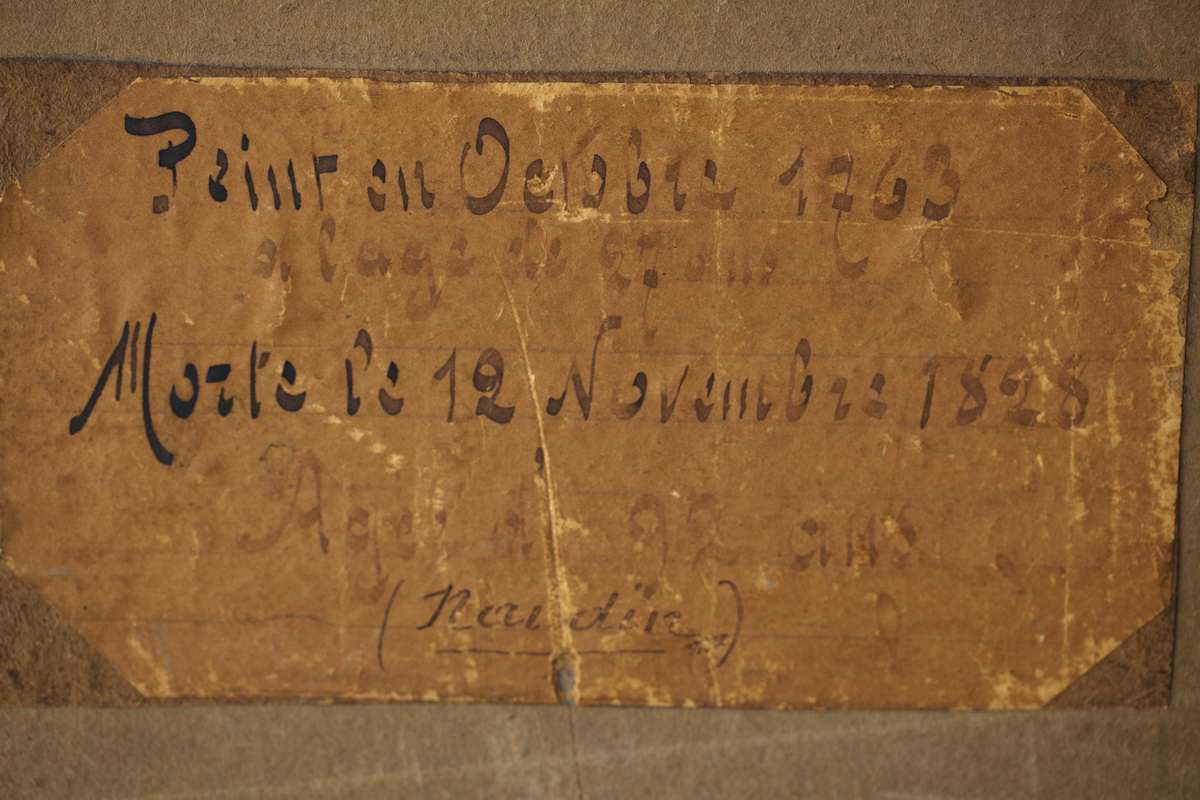 Peint en Octobre 1763
a l'age de 27 ans
Morte le 12 Novembre 1828
Agée de 92 ans
(Naudin)